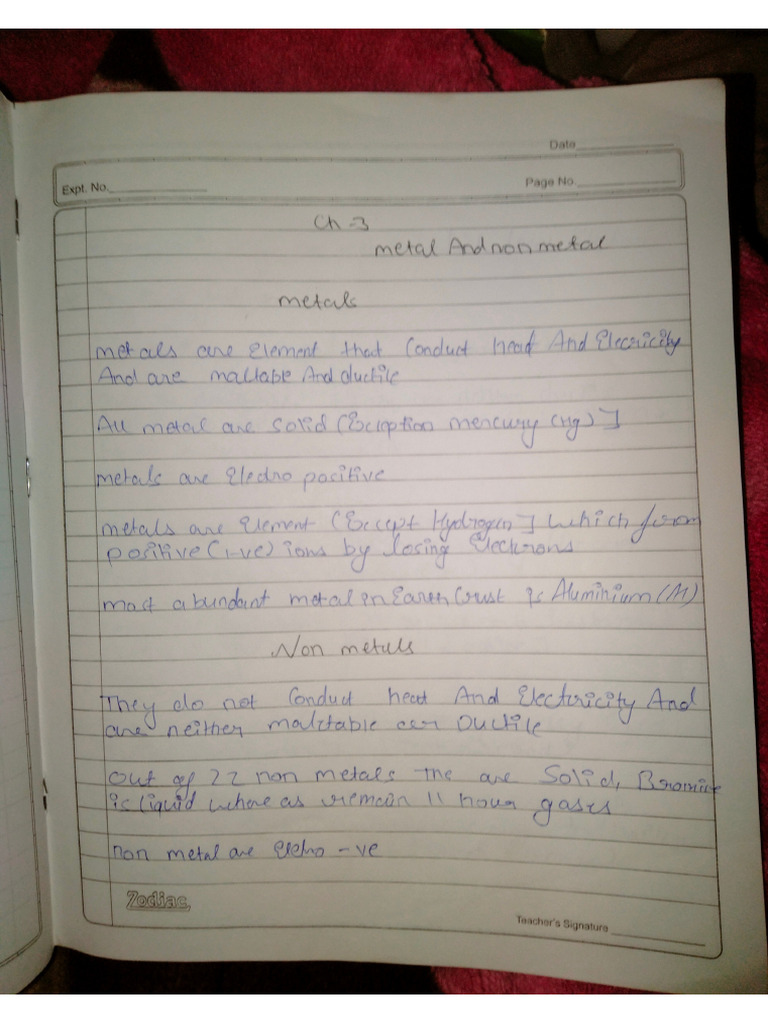 Date
Expt. No.
Page No.
Ch-3
metal And non metal
metals
metals are Element that Conduct heat And Elecricity
And are maltable And ductile
All metal are solid (Exception mercury (Hg)]
metals are Electro positive
metals are Element (Except Hydrogen] which form
positive (+ve) ions by losing Electrons
most abundant metal in Earth Crust is Aluminium (Al)
Non metals
They do not Conduct heat And Electricity And
are neither ductile
out of 22 non metals the are Solid, Bromine
is liquid where as remain 11 gases
non metal are Electro -ve
Zodiac
Teacher's Signature